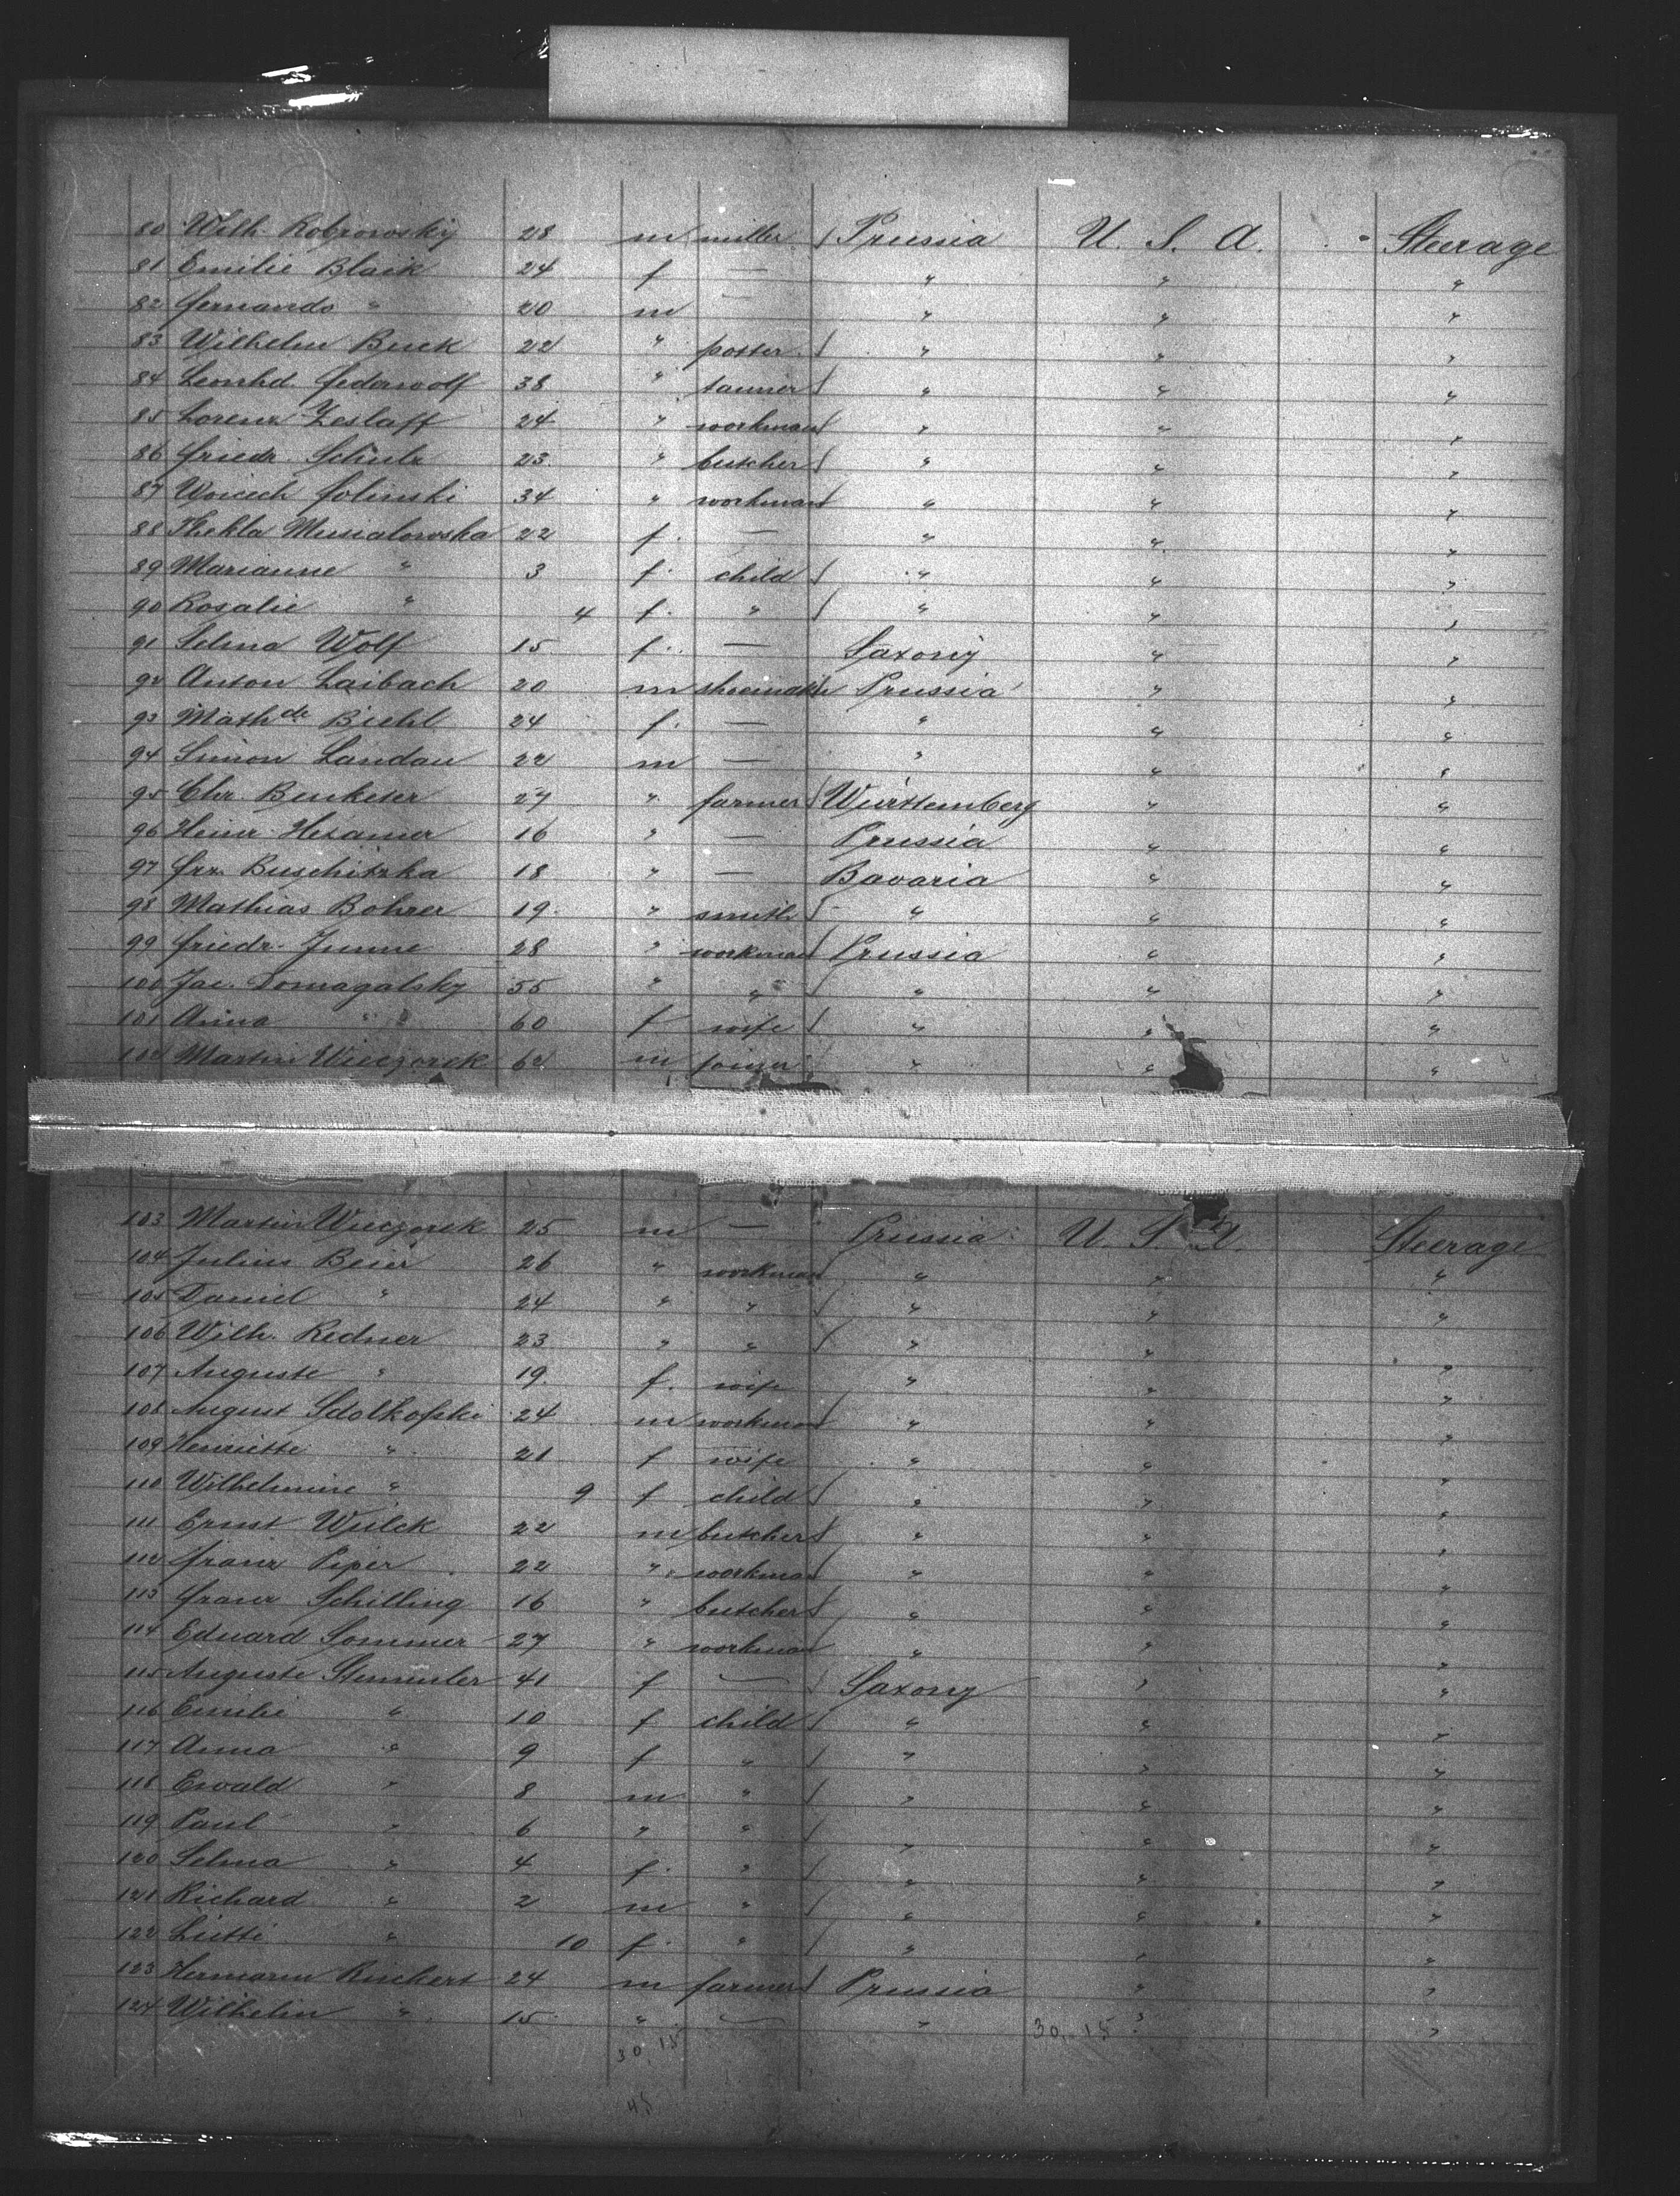 80 Wilh. Kobrowsky 28 m miller Prussia U. S. A. Steerage
81 Emilie Blaik 24 f — " " "
82 Fernando " 20 m — " " "
83 Wilhelm Beick 22 " potter " " "
84 Leonhd. Federwolf 38 " tanner " " "
85 Lorenz Zeslaff 24 " workman " " "
86 Friedr. Schulz 23 " butcher " " "
87 Woicech Golinski 34 " workman " " "
88 Thekla Musialowska 22 f. — " " "
89 Marianne " 3 f. child " " "
90 Rosalie " 4 f. " " " "
91 Selma Wolf 15 f. — Saxony " "
92 Anton Laibach 20 m shoemaker Prussia " "
93 Mathde Biehl 24 f. — " " "
94 Simon Landau 22 m — " " "
95 Chr. Benketer 27 " farmer Württemberg " "
96 Heinr. Hexamer 16 " — Prussia " "
97 Frz. Buschitzka 18 " — Bavaria " "
98 Mathias Bohrer 19 " smith " " "
99 Friedr. Junne 28 " workman Prussia " "
100 Jac. Domagalsky 55 " " " " "
101 Anna " 60 f wife " " "
102 Martin Wieczorek 62 m joiner " " "
103 Martin Wieczorek 25 m — Prussia U. S. A. Steerage
104 Julius Beier 26 " workman " " "
105 Daniel " 24 " " " " "
106 Wilh. Redner 23 " " " " "
107 Auguste " 19 f. wife " " "
108 August Sdolkofski 24 m workman " " "
109 Henriette " 21 f wife " " "
110 Wilhelmine " 9 f child " " "
111 Ernst Wülck 22 m butcher " " "
112 Franz Piper 22 " workman " " "
113 Franz Schilling 16 " butcher " " "
114 Eduard Sommer 27 " workman " " "
115 Auguste Stemmler 41 f — Saxony " "
116 Emilie " 10 f child " " "
117 Anna " 9 f " " " "
118 Ewald " 8 m " " " "
119 Paul " 6 " " " " "
120 Selma " 4 f. " " " "
121 Richard " 2 m " " " "
122 " 10 f. " " " "
123 Hermann 24 m farmer Prussia " "
124 Wilhelm " 15 " — " " "
30,15 30,15
45